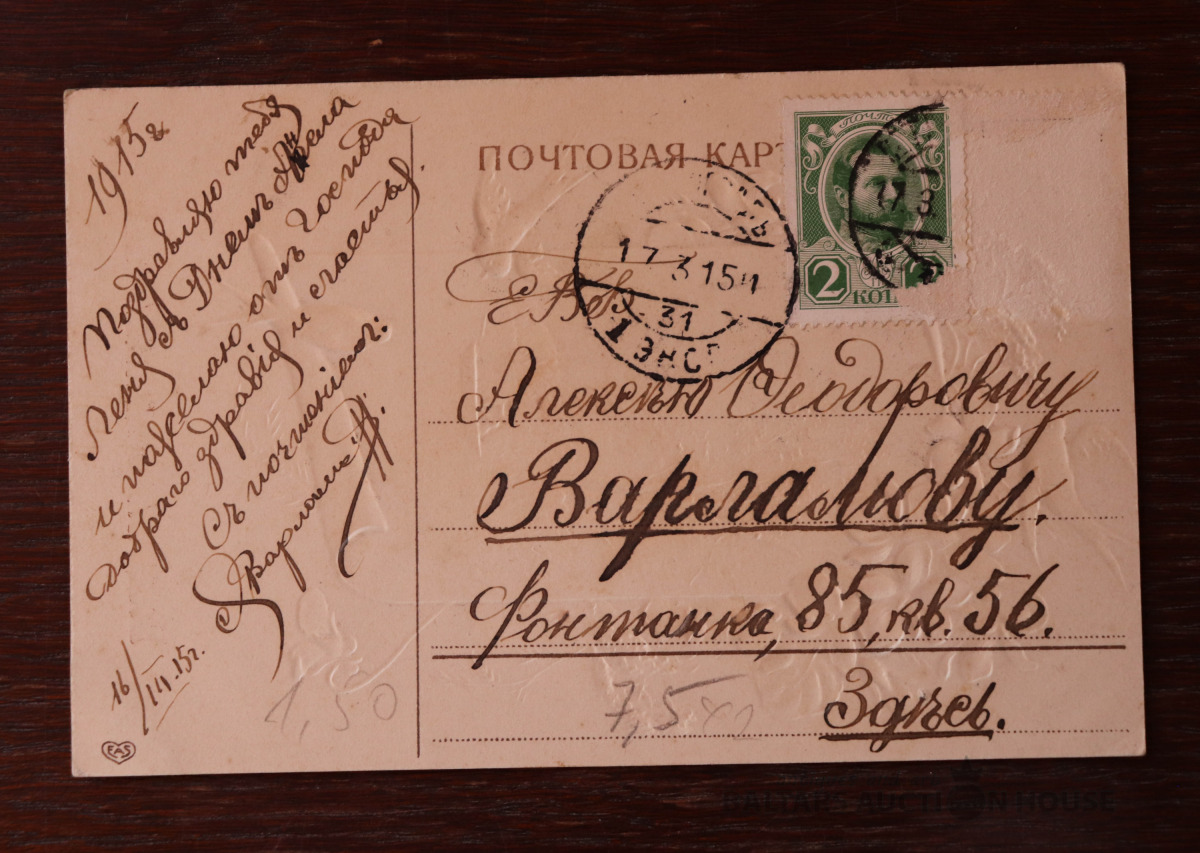 1915 г
Поздравляю тебя
Леня съ Днемъ Ангела
и пожелаю отъ Господа
добраго здравія и счастья.
Съ почтеніемъ:
16/III.15 г.
EAS
ПОЧТОВАЯ КАР
ПОЧТ
2
КОП
17 3
17.3.15
31
1 ЭКСП
Е.В.Б.
Алексѣю Ѳеодоровичу
Варламову.
Фонтанка, 85, кв. 56.
Здѣсь.
1,50
7,5
BALTARS AUCTION HOUSE